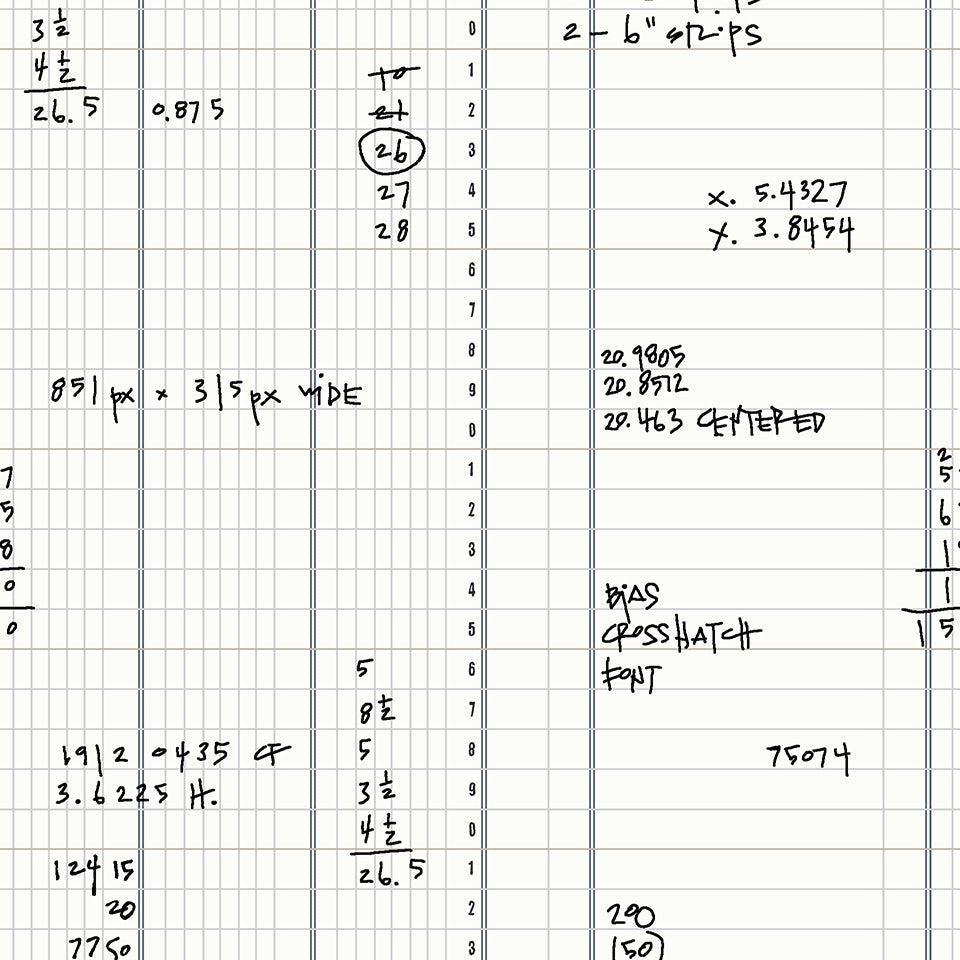 3 1/2
4 1/2
26.5 0.875
10
21
26
27
28
851 px x 315 px WIDE
7
5
8
0
0
5
8 1/2
5
3 1/2
4 1/2
26.5
1912 0435 CF
3.6225 H.
12415
20
7750
0
1
2
3
4
5
6
7
8
9
0
1
2
3
4
5
6
7
8
9
0
1
2
3
2 - 6" strips
x. 5.4327
y. 3.8454
20.9805
20.8572
20.463 CENTERED
BiAS
CROSSHATCH
FONT
75074
200
150
2
5
6
1
1
15